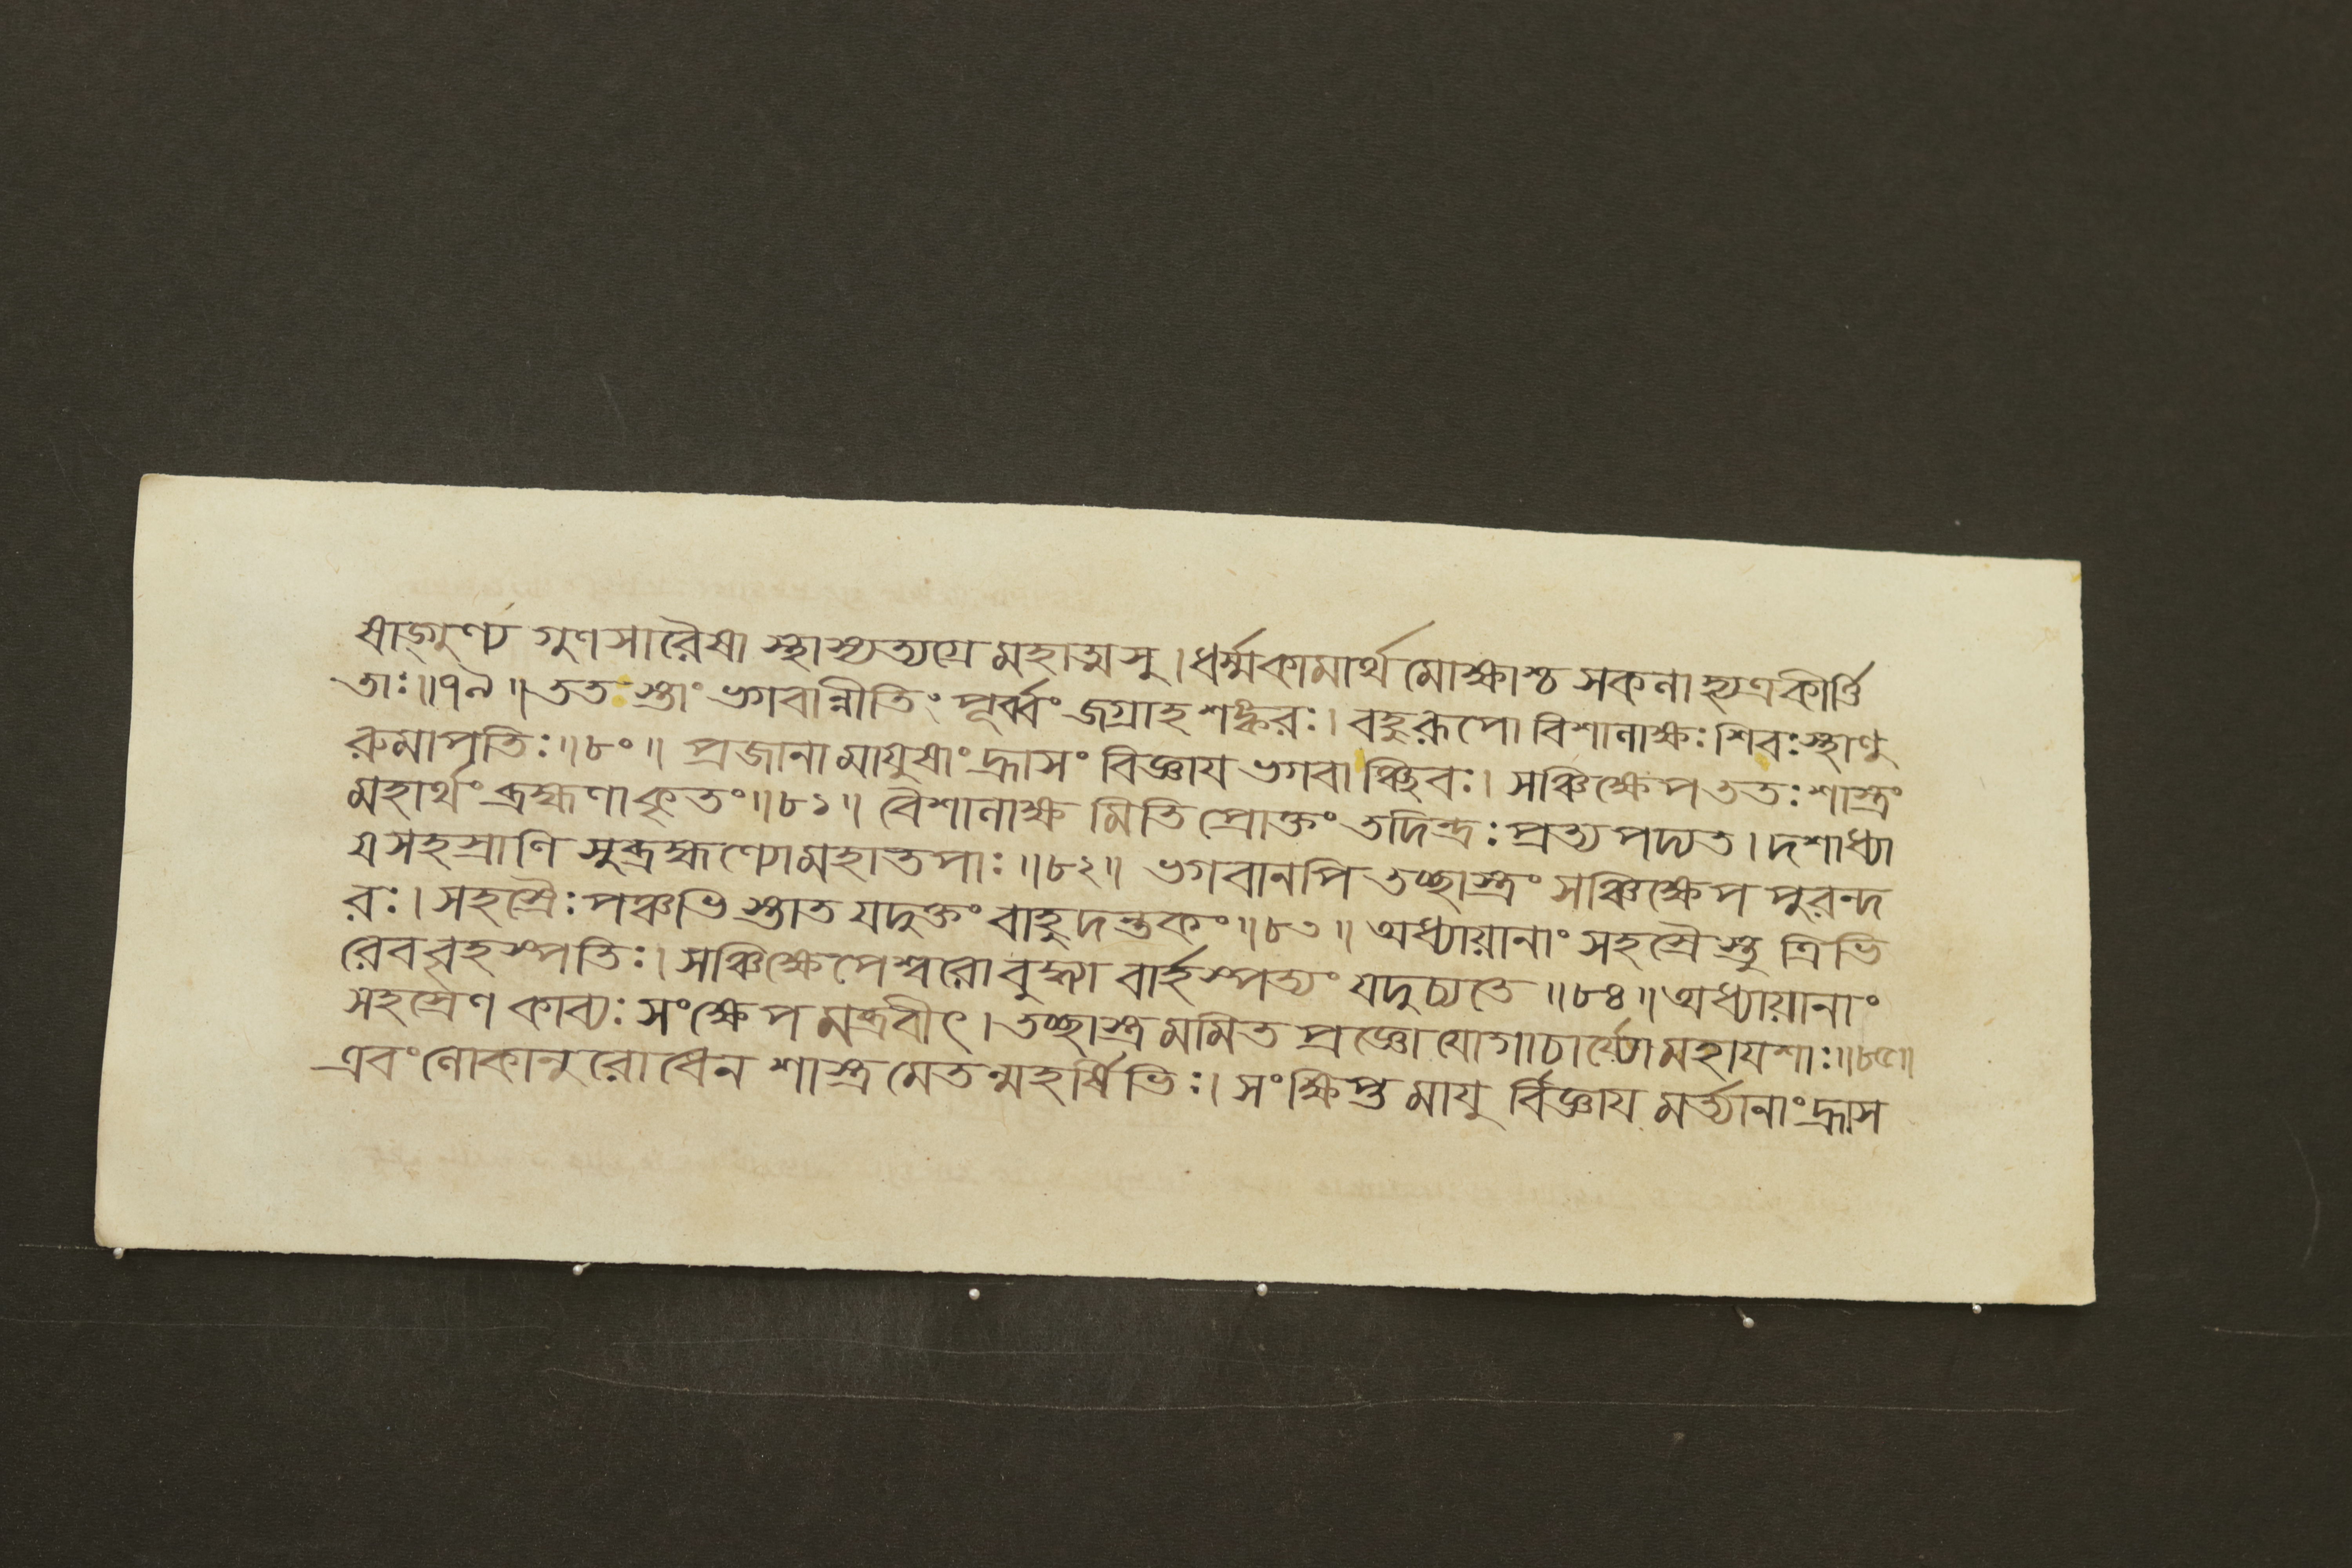 ষাড্গুণ্য গুণসারৈষা স্থাস্যত্যগ্রে মহাত্মসু । ধর্ম্মকামার্থ মোক্ষাশ্চ সকলা হ্যত্রকীর্ত্তি
তাঃ ॥ ৭৯ ॥ তত স্তাং ভগবান্নীতিং পূর্ব্বং জগ্রাহ শঙ্করঃ । বহুরূপো বিশালাক্ষঃ শিবঃ স্থাণু
রুমাপতিঃ ॥ ৮০ ॥ প্রজানা মাযুষাং হ্রাসং বিজ্ঞায ভগবা ঞ্ছিবঃ । সঞ্চিক্ষেপ ততঃ শাস্ত্রং
মহার্থং ব্রহ্মণা কৃতং ॥ ৮১ ॥ বৈশালাক্ষ মিতি প্রোক্তং তদিন্দ্রঃ প্রত্য পদ্যত । দশাধ্যা
য সহস্রাণি সুব্রহ্মণ্যো মহাতপাঃ ॥ ৮২ ॥ ভগবানপি তচ্ছাস্ত্রং সঞ্চিক্ষেপ পুরন্দ
রঃ । সহস্রৈঃ পঞ্চভি স্তাত যদুক্তং বাহুদন্তকং ॥ ৮৩ ॥ অধ্যায়ানাং সহস্রৈ স্তু ত্রিভি
রেব বৃহস্পতিঃ । সঞ্চিক্ষেপেশ্বরো বুদ্ধ্যা বার্হস্পত্যং যদুচ্যতে ॥ ৮৪ ॥ অধ্যায়ানাং
সহস্রেণ কাব্যঃ সংক্ষেপ মব্রবীৎ । তচ্ছাস্ত্র মমিত প্রজ্ঞো যোগাচার্য্যো মহাযশাঃ ॥ ৮৫ ॥
এবং লোকানুরোধেন শাস্ত্র মেতন্মহর্ষিভিঃ । সংক্ষিপ্ত মাযু র্বিজ্ঞায মর্ত্যানাং হ্রাস